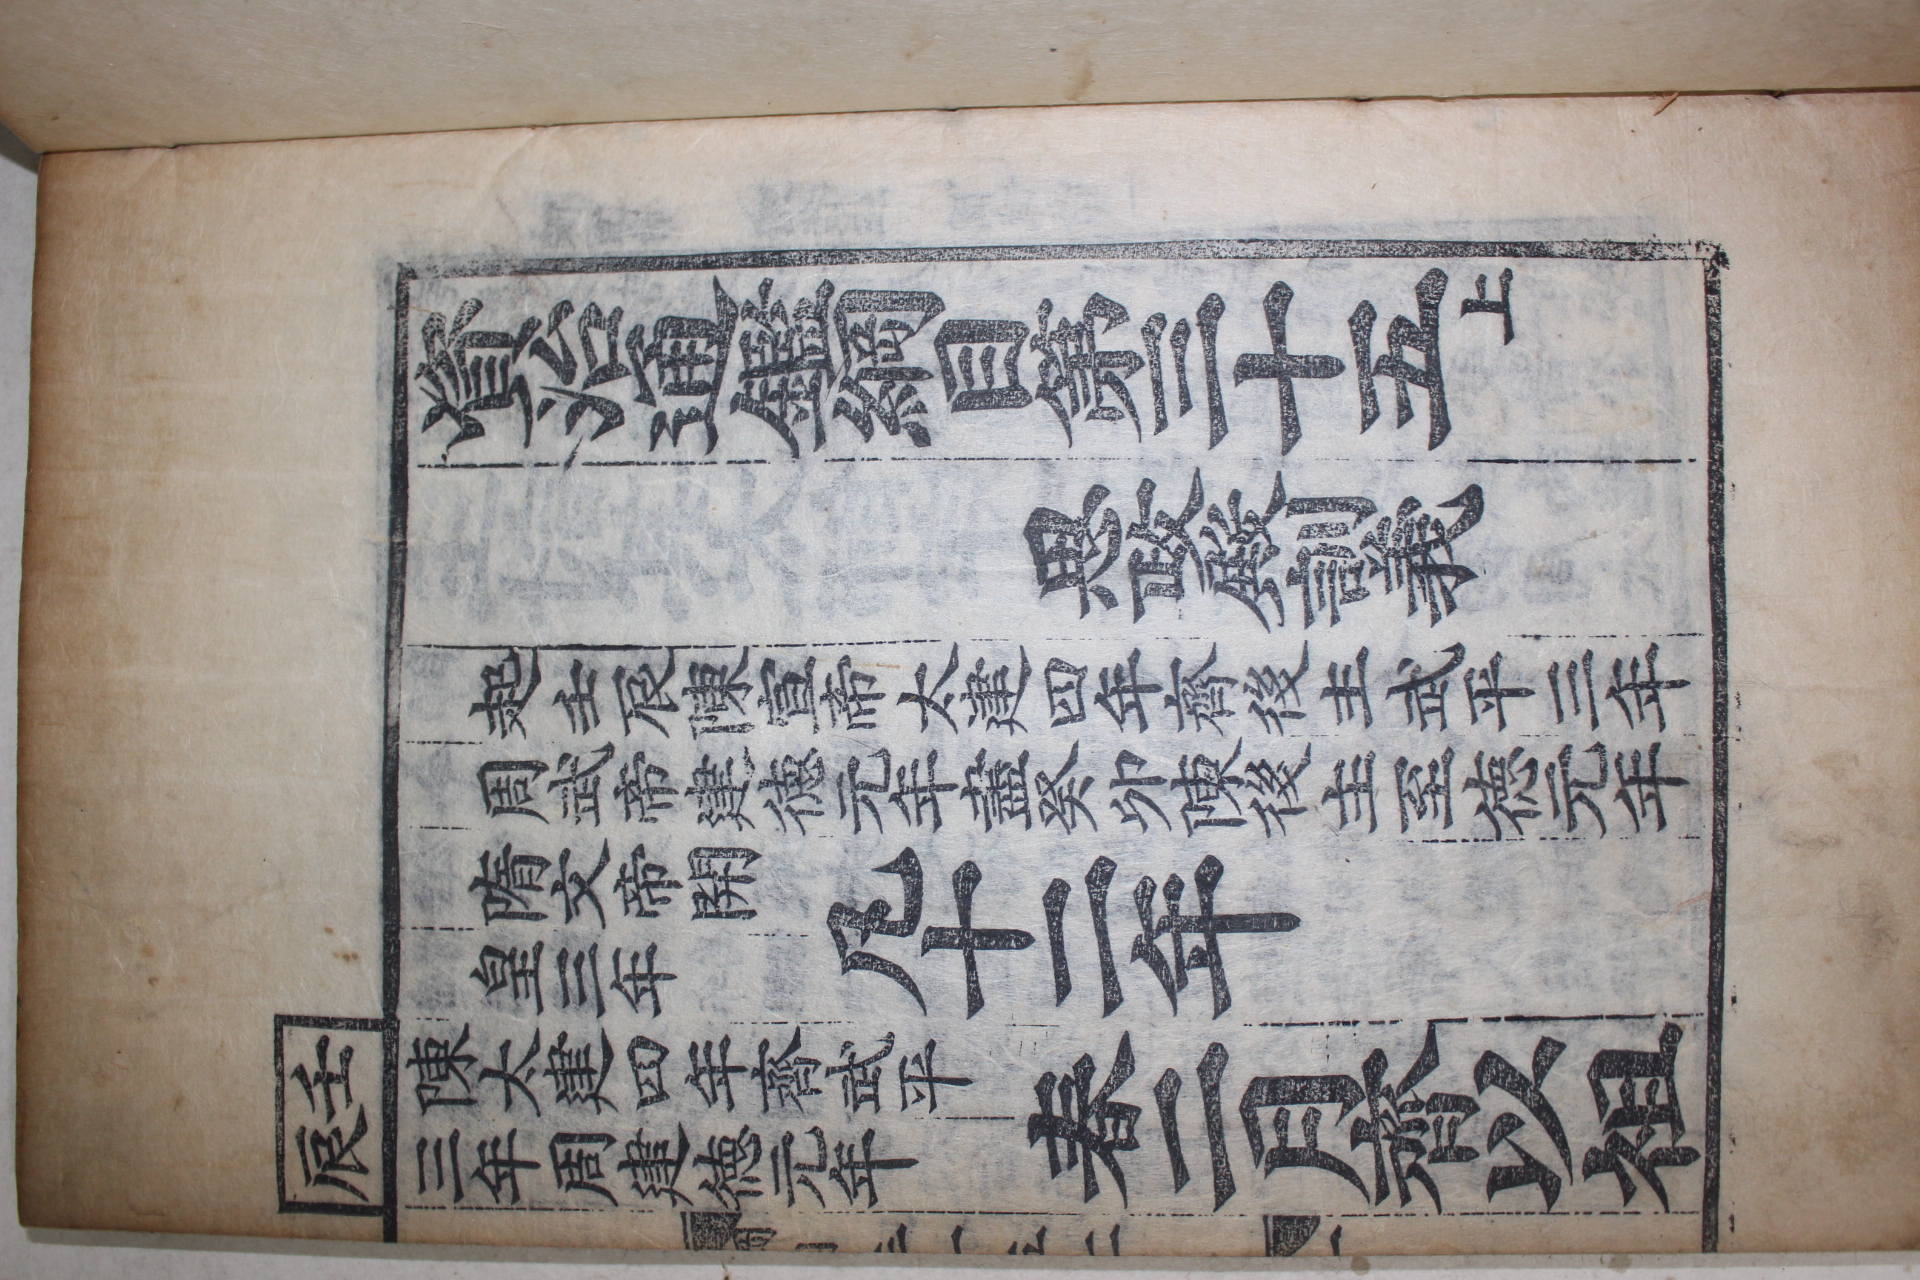 資治通鑑綱目第三十五上
思政殿訓義
起壬辰陳宣帝大建四年齊後主武平三年
周武帝建德元年盡癸卯陳後主至德元年
隋文帝開
皇三年
凡十二年
壬辰
陳大建四年齊武平
三年周建德元年
春二月齊以祖